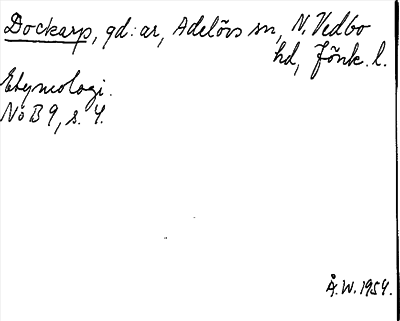 Dockarp, gd:ar, Adelövs sn, N. Vedbo
hd, Jönk. l.
Etymologi.
NoB 9, s. 4.
Å.W. 1954.